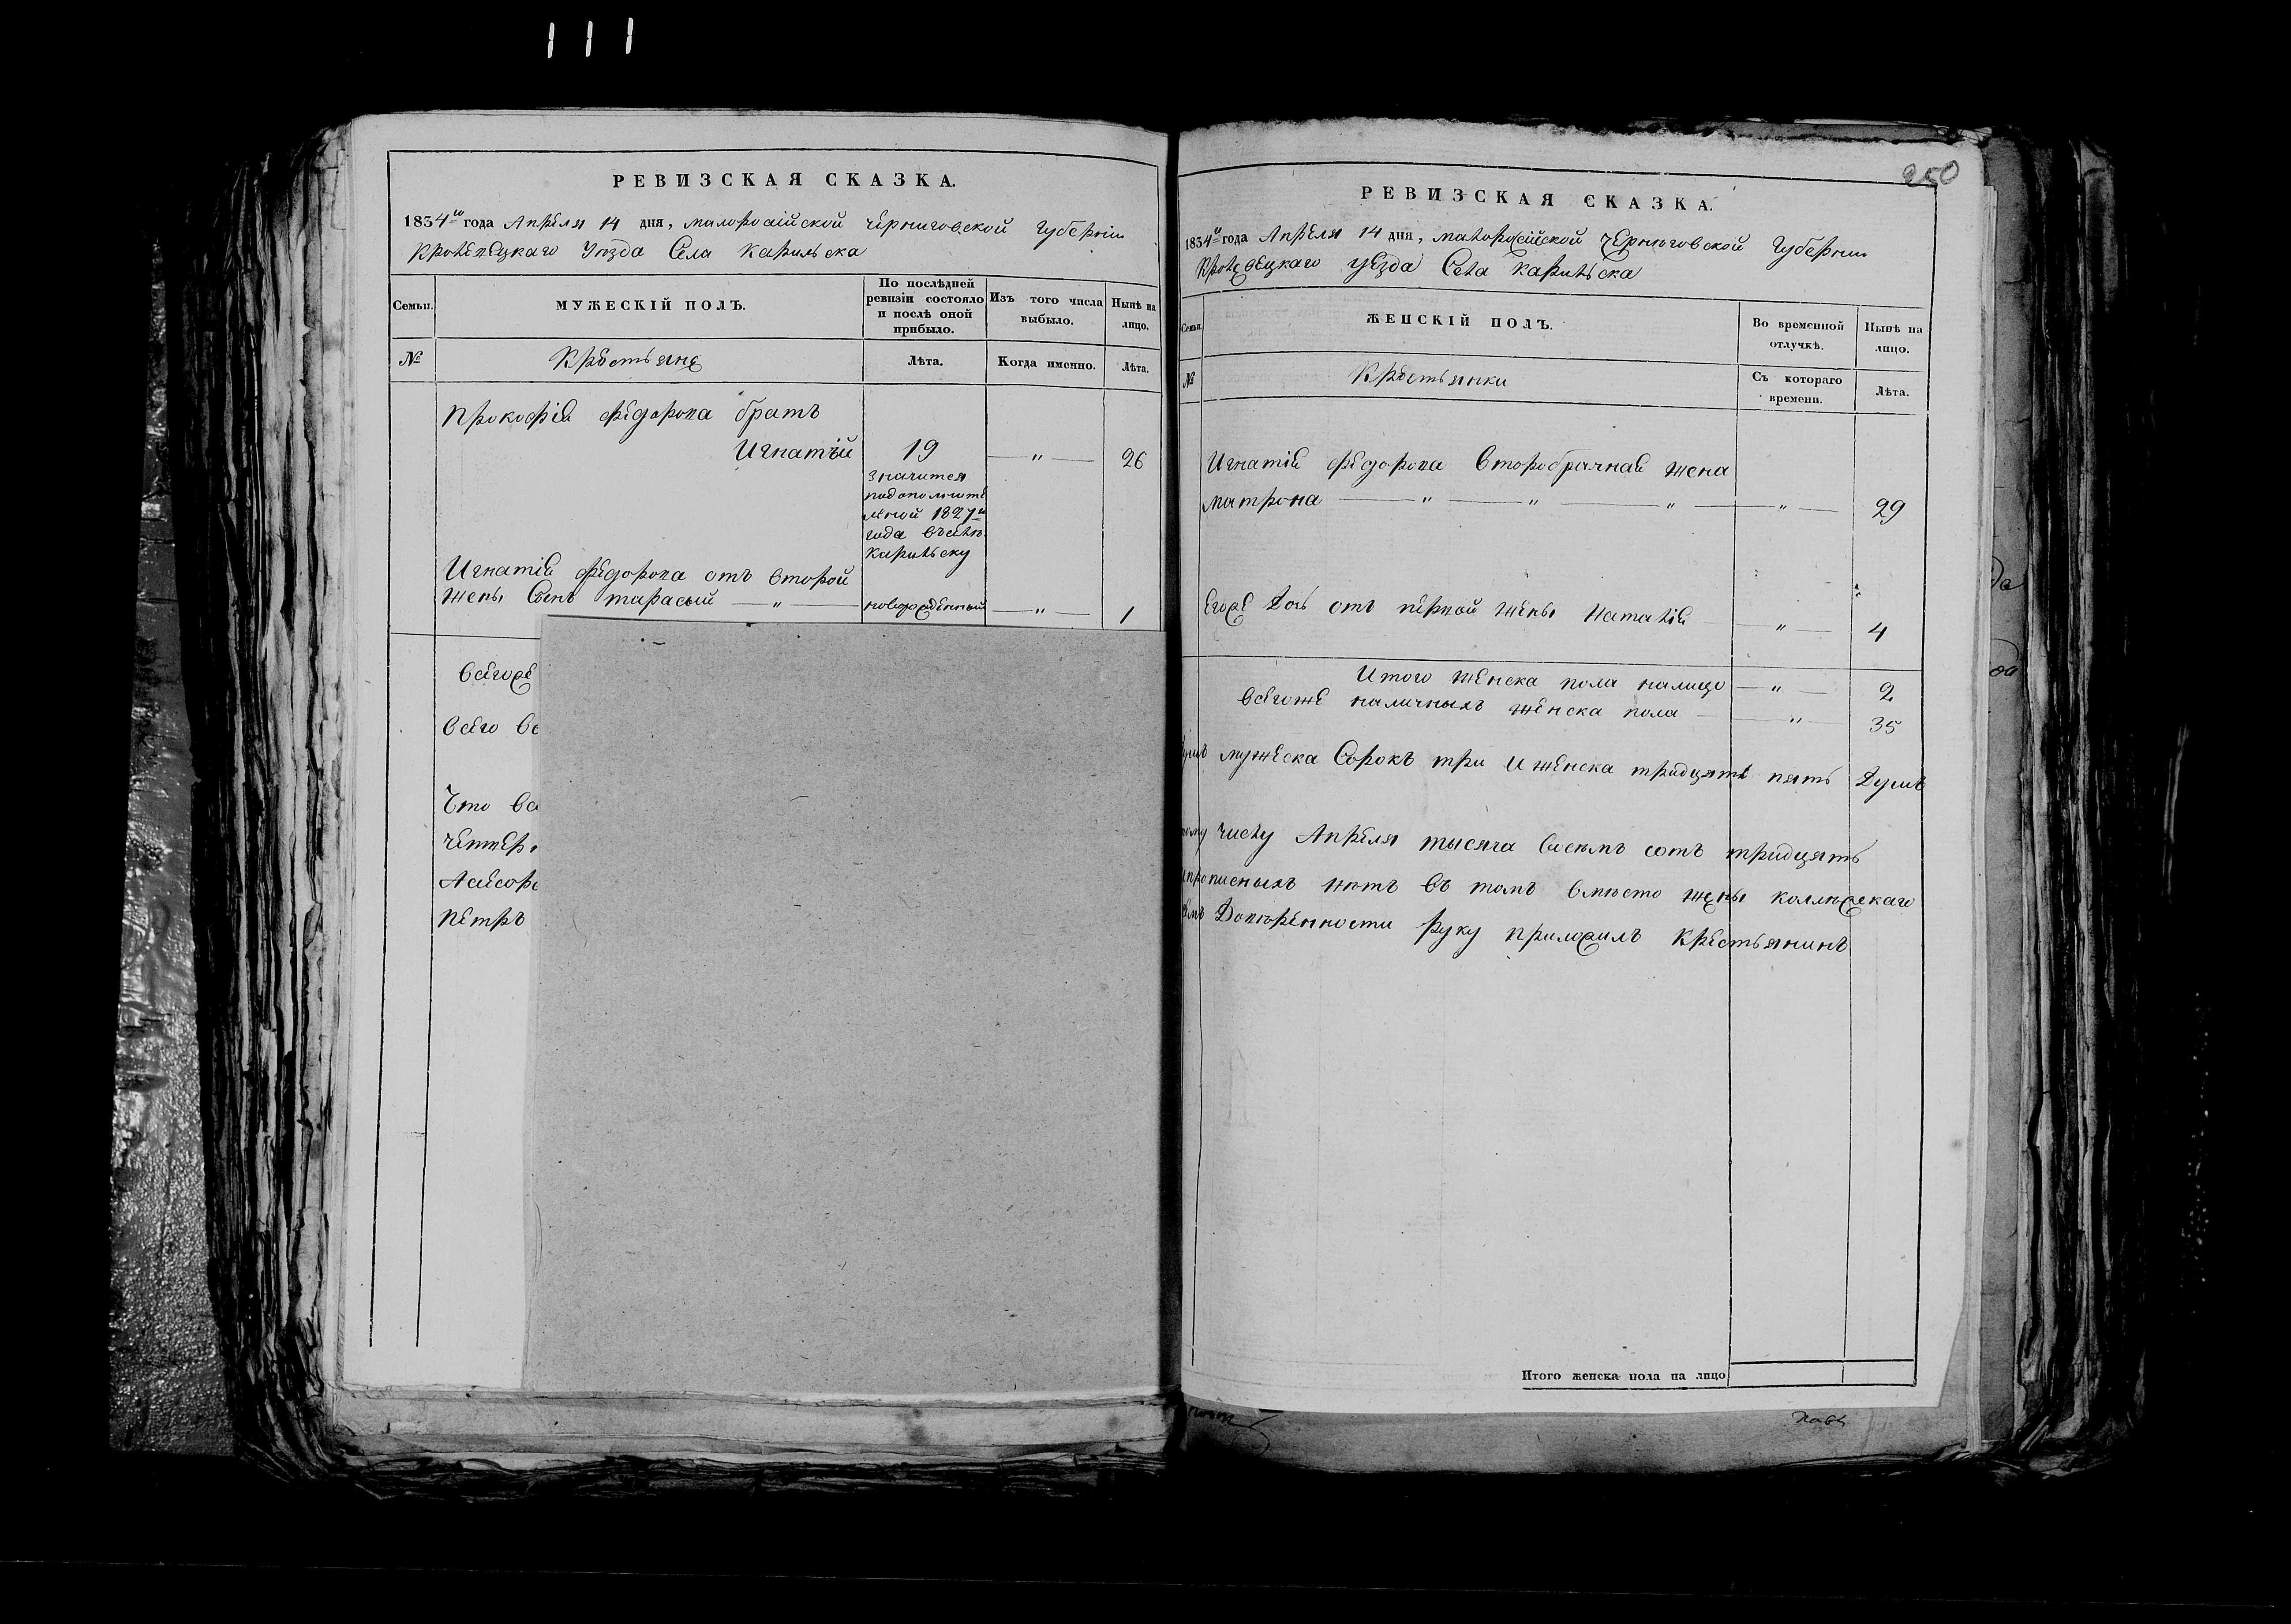 РЕВИЗСКАЯ СКАЗКА.
1834го года Апреля 14 дня, малоросiйской Черниговской Губернiи
Кролевецкаго Уѣзда Села Карильска
Семьи.
МУЖЕСКІЙ ПОЛЪ.
По послѣдней ревизіи состояло и послѣ оной прибыло.
Изъ того числа выбыло.
Нынѣ на лицо.
№
Крестьяне
Лѣта.
Когда именно.
Лѣта.
Прокофiя Федорова братъ
Игнатiй 19 — " — 26
значится
по дополните
льной 1827го
года въ селѣ
Карильску
Игнатiя Федорова отъ второй
жены сынъ Тарасий — " — новорожденный — " — 1
Всегоже
Всего
Что
Четвер
Асесор
Петръ
250
РЕВИЗСКАЯ СКАЗКА.
1834го года Апреля 14 дня, малоросiйской Черниговской Губернии
Кролевецкаго уезда Села Карильска
Семьи.
ЖЕНСКІЙ ПОЛЪ.
Во временной отлучкѣ.
Нынѣ на лицо.
№
Крестьянки
Съ котораго времени.
Лѣта.
Игнатiя Федорова второбрачная жена
Матрона — " — " — " — " — 29
Егоже дочь отъ первой жены Наталiя — " — 4
Итого женска пола налицо — " — 2
Всегоже наличныхъ женска пола — " — 35
мужеска сорокъ три и женска тридцять пять душъ
числу Апреля тысяча восемъ сотъ тридцять
прописныхъ нѣтъ въ томъ вмѣсто жены коллежскаго
Довѣренности руку приложилъ крестьянинъ
Итого женска пола на лицо